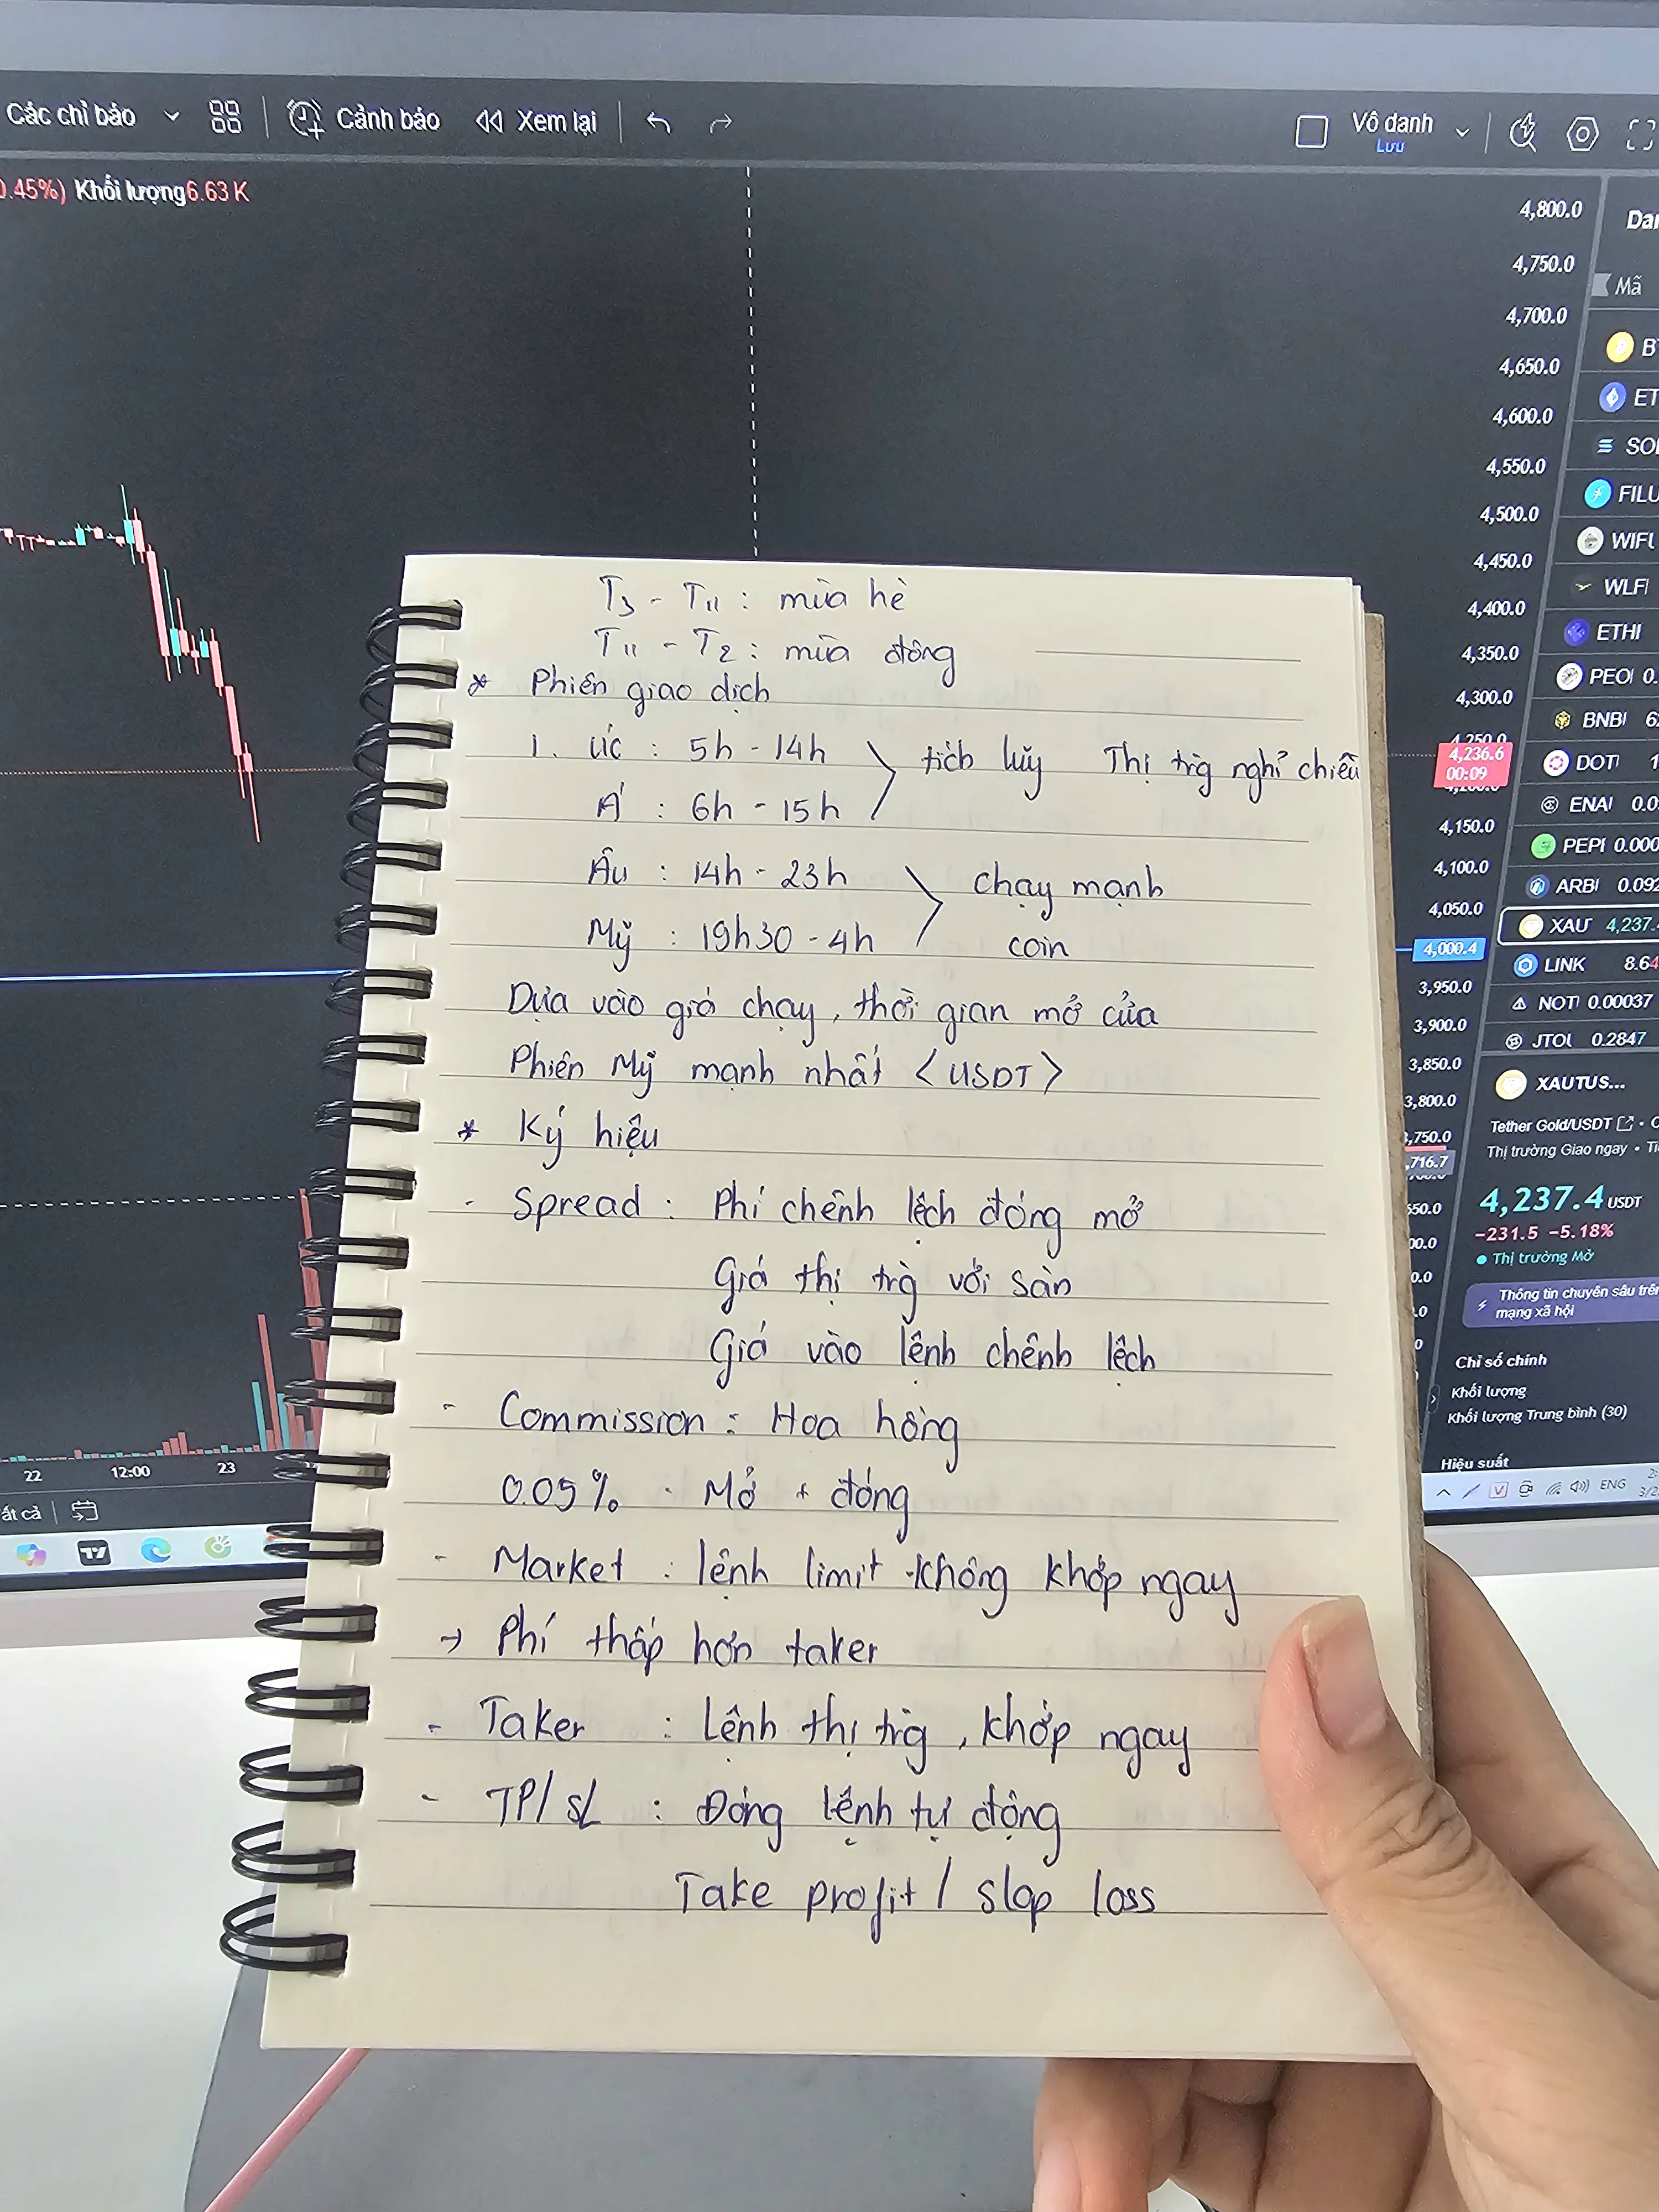 Các chỉ báo
Cảnh báo
Xem lại
Vô danh
Lưu
0.45%) Khối lượng6.63 K
4,800.0
4,750.0
4,700.0
4,650.0
4,600.0
4,550.0
4,500.0
4,450.0
4,400.0
4,350.0
4,300.0
4,250.0
4,236.6
00:09
4,150.0
4,100.0
4,050.0
4,000.4
3,950.0
3,900.0
3,850.0
3,800.0
3,750.0
,716.7
Mã
SOL
FILU
WLFI
ETHI
PEOI 0.
BNBI
DOTI
ENAI 0.0
PEPI 0.000
ARBI 0.092
XAUT 4,237.4
LINK 8.64
NOTI 0.00037
JTOU 0.2847
XAUTUS...
Tether Gold/USDT
Thị trường Giao ngay
4,237.4 USDT
-231.5 -5.18%
Thị trường Mở
Thông tin chuyên sâu trên
mạng xã hội
Chỉ số chính
Khối lượng
Khối lượng Trung bình (30)
Hiệu suất
22 12:00 23
ất cả
ENG
T3 - T11 : mùa hè
T11 - T2 : mùa đông
* Phiên giao dịch
1. Úc : 5h - 14h
tích luỹ Thị trg nghỉ chiều
Á : 6h - 15h
Âu : 14h - 23h
chạy mạnh
Mỹ : 19h30 - 4h
coin
Dựa vào giá chạy, thời gian mở của
Phiên Mỹ mạnh nhất <USDT>
* Ký hiệu
- Spread : Phí chênh lệch đóng mở
Giá thị trg với sàn
Giá vào lệnh chênh lệch
- Commission : Hoa hồng
0.05% . Mở + đóng
- Market : lệnh limit không khớp ngay
→ Phí thấp hơn taker
- Taker : Lệnh thị trg, khớp ngay
- TP/SL : Đóng lệnh tự động
Take profit / slop loss